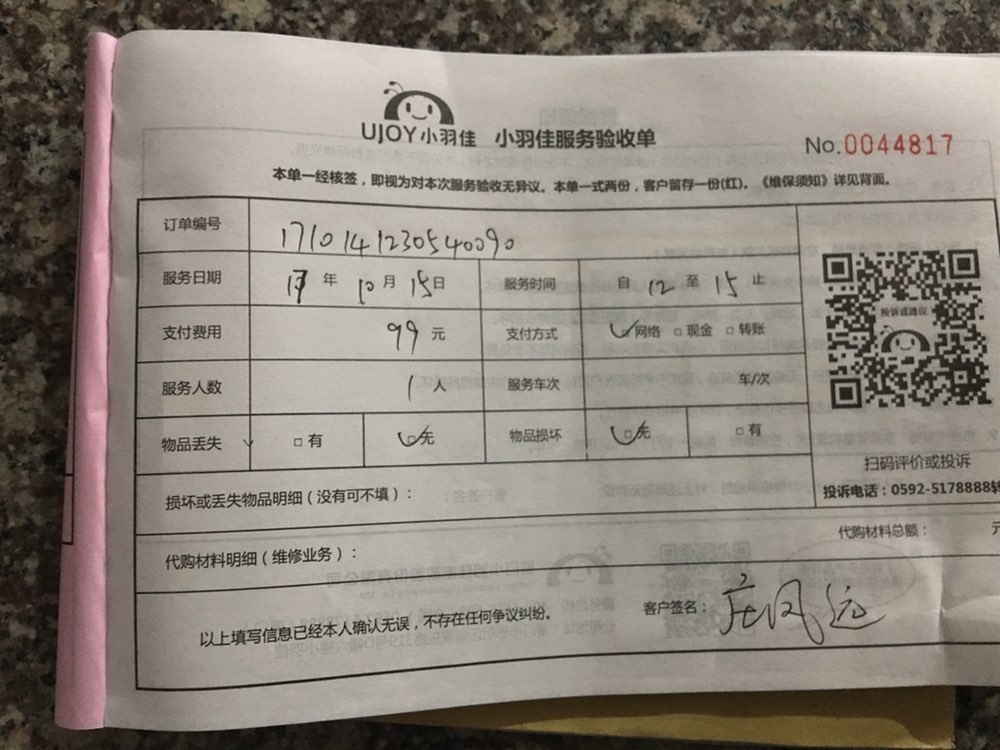 UJOY小羽佳 小羽佳服务验收单
No.0044817
本单一经核签，即视为对本次服务验收无异议。本单一式两份，客户留存一份(红)。《维保须知》详见背面。
订单编号 1710141230540090
服务日期 17年10月15日 服务时间 自12至15止
支付费用 99元 支付方式 ☑网络 □现金 □转账
服务人数 1人 服务车次 车/次
物品丢失 □有 ☑无 物品损坏 ☑无 □有
投诉或建议
扫码评价或投诉
投诉电话：0592-5178888转
损坏或丢失物品明细（没有可不填）：
代购材料明细（维修业务）： 代购材料总额： 元
以上填写信息已经本人确认无误，不存在任何争议纠纷。 客户签名：庄风远